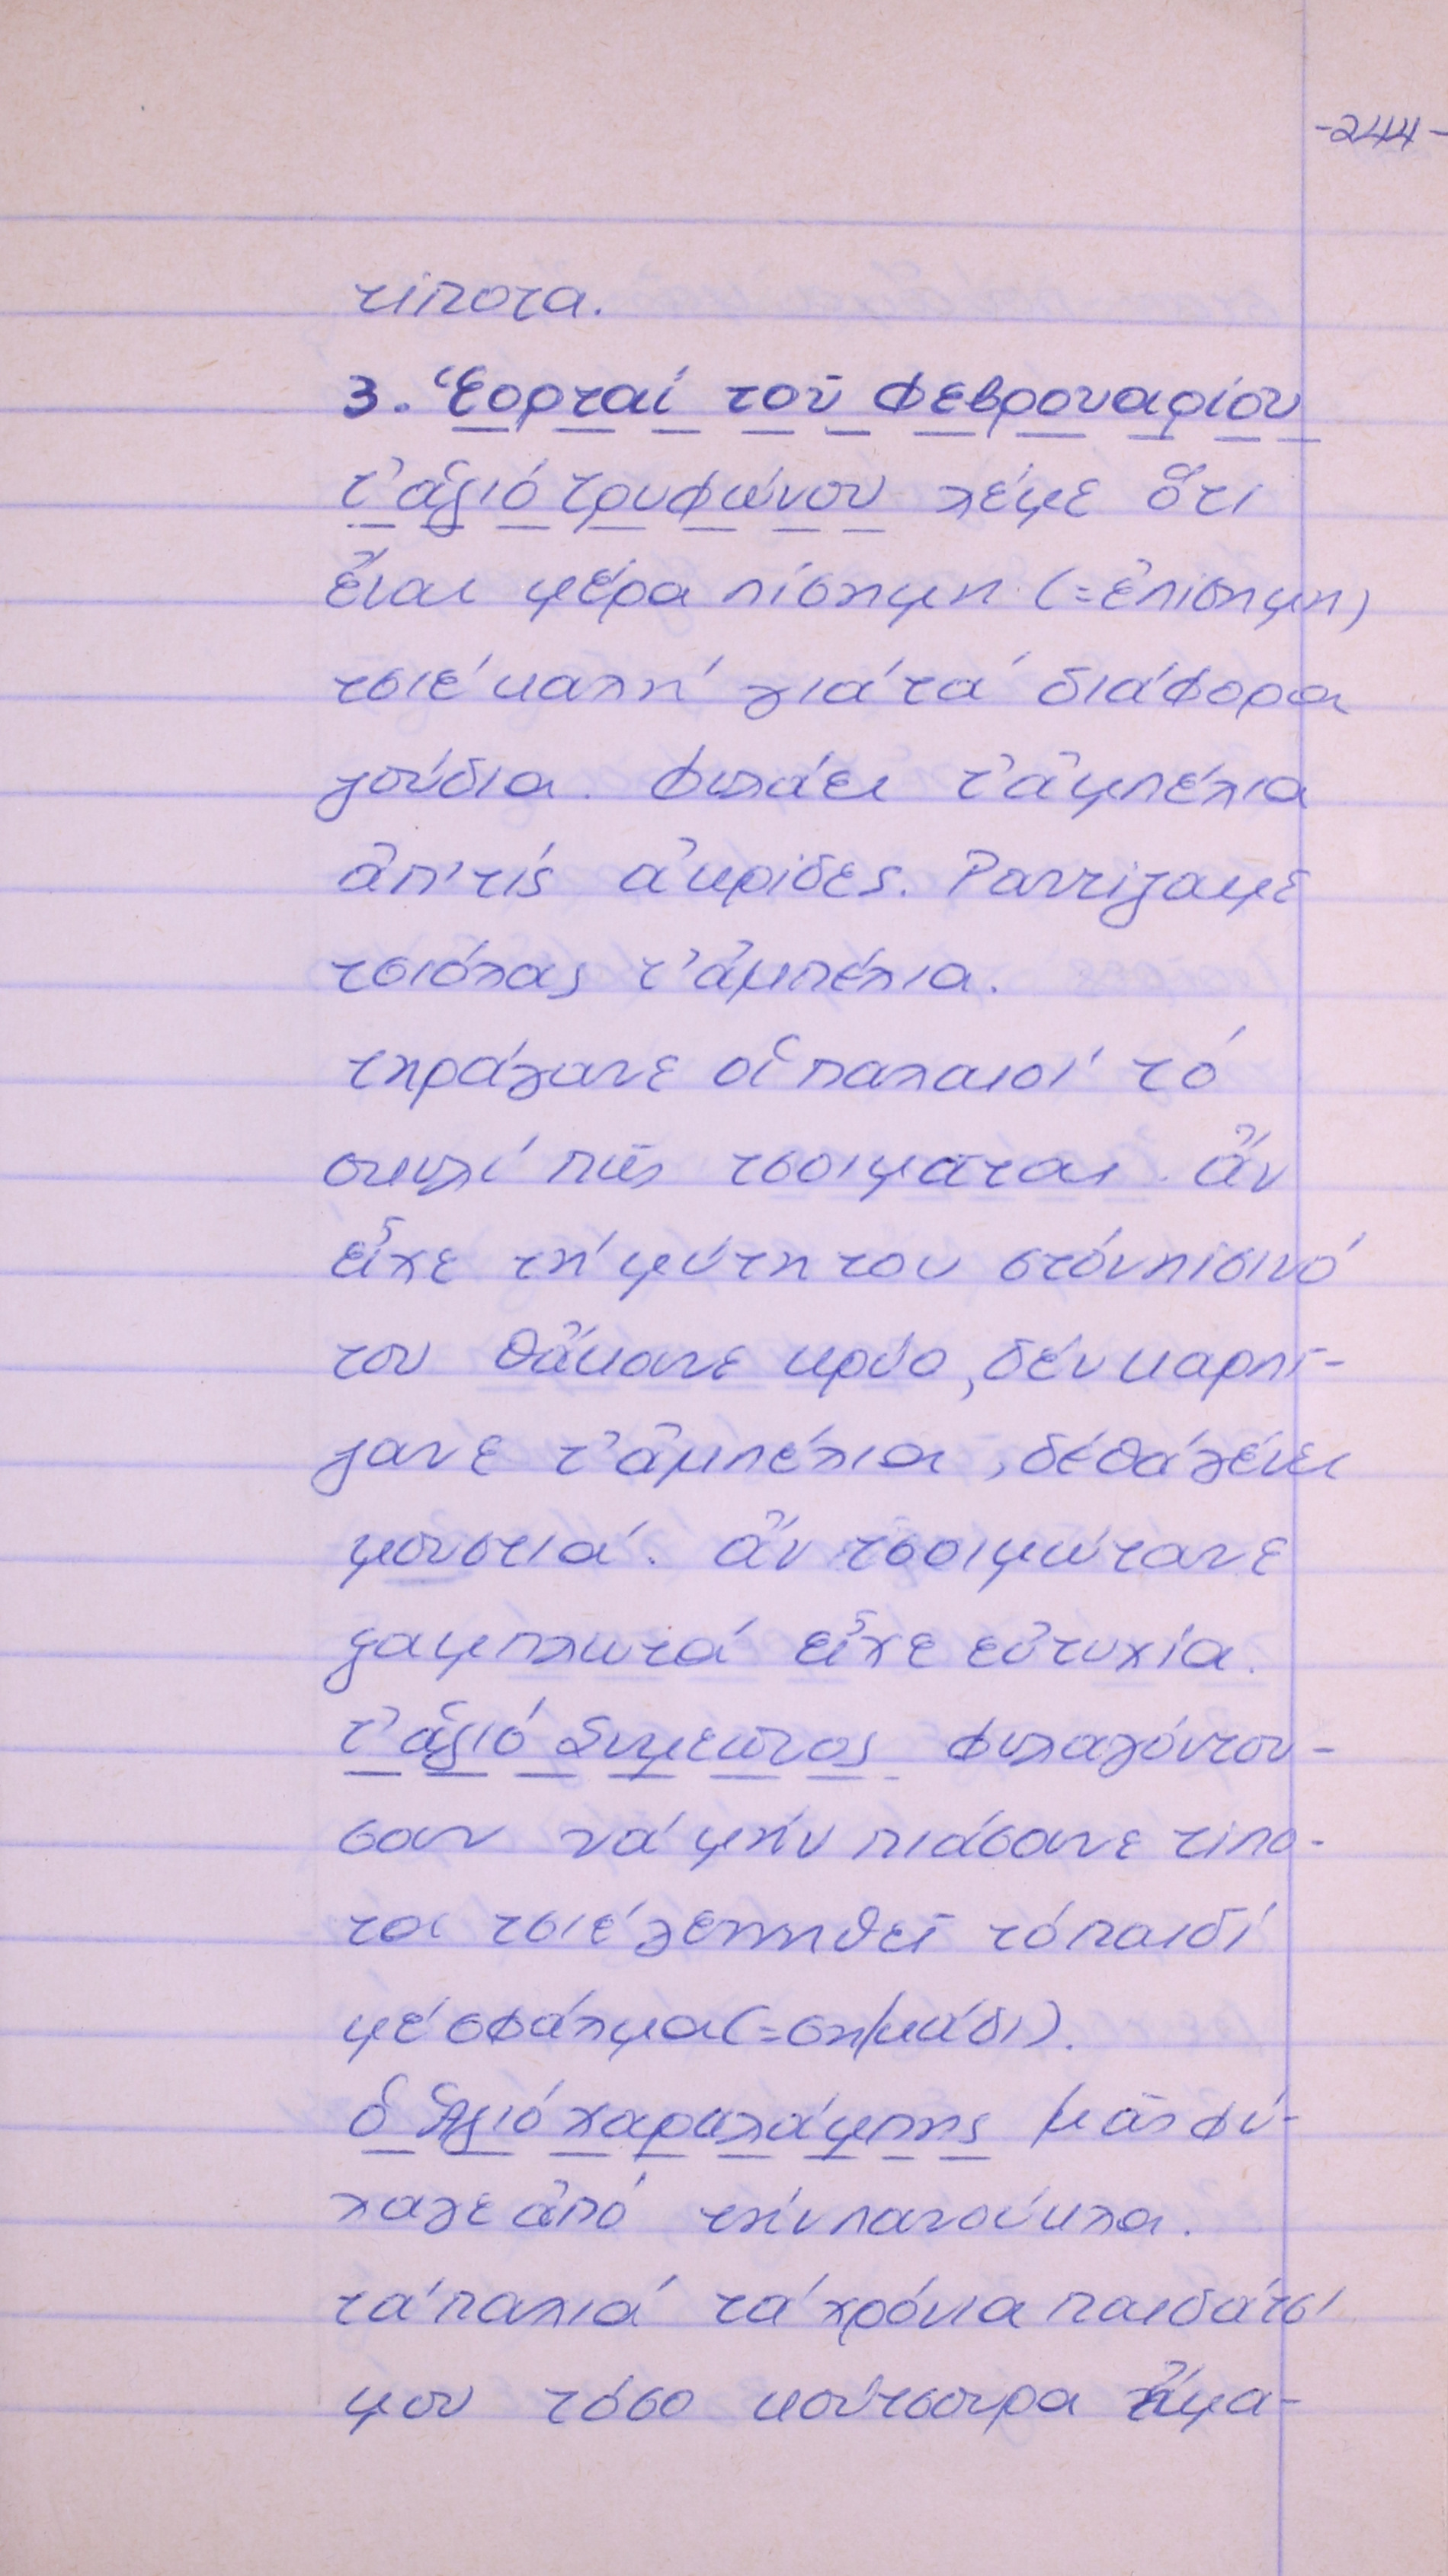 -244-
τίποτα.
3. Ἑορταί τοῦ Φεβρουαρίου
τ' ἁγιό Τρυφώνου λέμε ὅτι
εἶναι μέρα πίσημη (=ἐπίσημη)
τσιέ καλή γιά τά διάφορα
ζούδια. Φυλάει τ' ἀμπέλια
ἀπ' τίς ἀκρίδες. Ραντίζαμε
τσιόλας τ' ἀμπέλια.
τηράγανε οἱ παλαιοί τό
σκυλί πῶς τσοιμᾶται. ἄν
εἶχε τή μύτη του στόν πισινό
του θἄκανε κρύο, δέν καρπί-
ζανε τ' ἀμπέλια, δέ θά γένει
μουστιά. ἄν τσοιμώτανε
ζαμπλωτά εἶχε εὐτυχία.
τ' ἁγιό Συμεῶνος φυλαγόντου-
σαν νά μήν πιάσανε τίπο-
τα τσιέ γεννηθεῖ τό παιδί
μέ σφάλμα (=σημάδι).
ὁ Ἁγιό χαραλάμπης μᾶς φύ-
λαγε ἀπό τήν πανούκλα.
τά παλιά τά χρόνια παιδάτσι
μου τόσο κούτσουρα ἤμα-